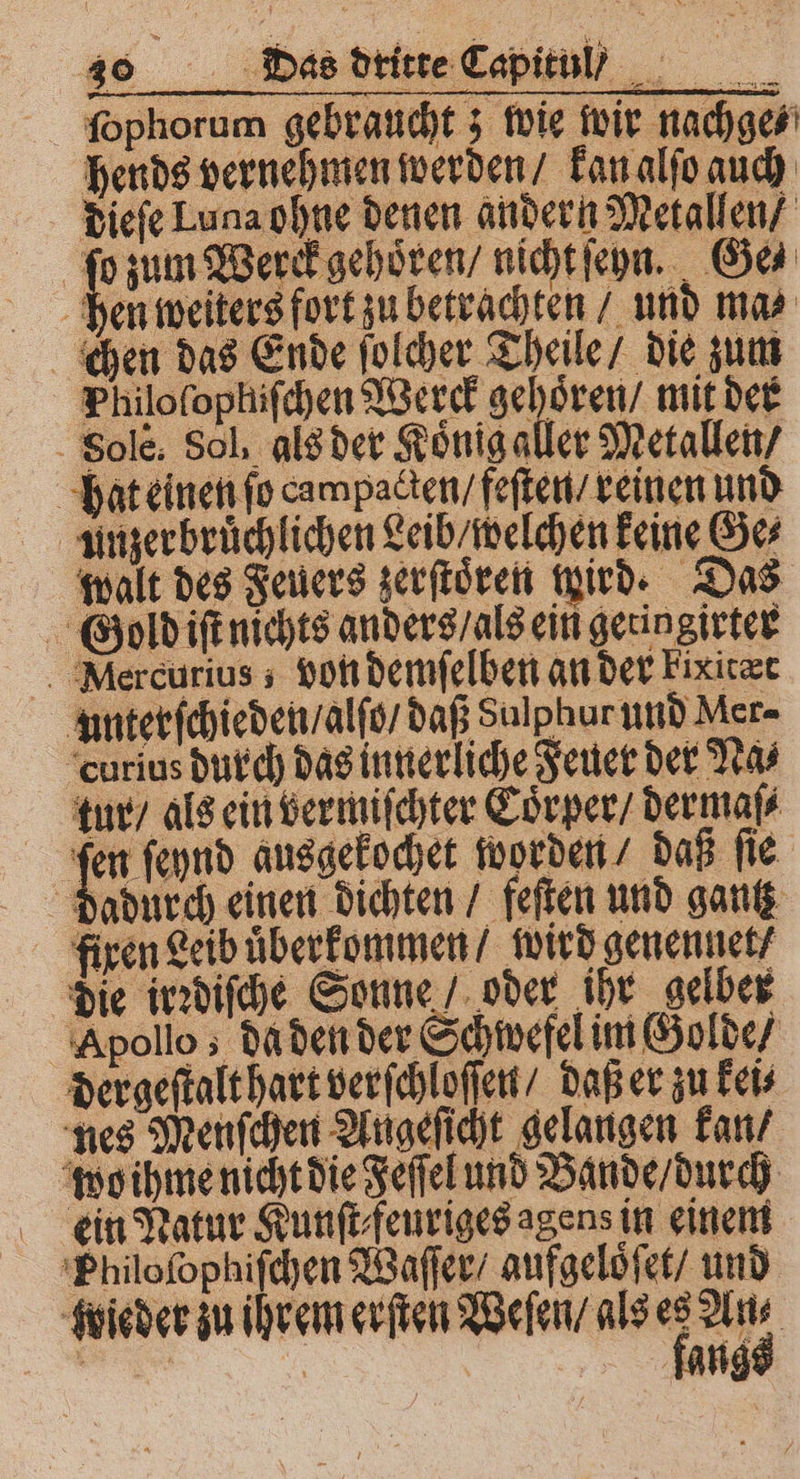 30 Das dritte Capitul/
ſophorum gebraucht ; wie wir nachge⸗
hends vernehmen werden / kan alſo auch
dieſe Luna ohne denen andern Metallen/
ſo zum Werck gehoͤren/ nicht ſeyn. Ge⸗
hen weiters fort zu betrachten / und ma⸗
chen das Ende ſolcher Theile / die zum
Philoſophiſchen Werck gehoͤren/ mit der
Sole. Sol, als der Koͤnig aller Metallen/
hat einen ſo campacten/ feſten/ reinen und
unzerbruͤchlichen Leib/welchen keine Ge⸗
walt des Feuers zerſtoͤren wird. Das
Gold iſt nichts anders/als ein getingirter
Mercurius ; von demſelben an der Fixitæt
unterſchieden/alſo/ daß Sulphur und Mer-
curius durch das innerliche Feuer der Na⸗
tur/ als ein vermiſchter Coͤrper/ dermaſ⸗
ſen ſeynd ausgekochet worden / daß ſie
dadurch einen dichten / feſten und gantz
fixen Leib uͤberkommen / wird genennet/
die irꝛdiſche Sonne / oder ihr gelber
Apollo ; da den der Schwefel im Golde/
dergeſtalt hart verſchloſſen / daß er zu kei⸗
nes Menſchen Angeſicht gelangen kan/
wo ihme nicht die Feſſel und Bande/durch
ein Natur Kunſt⸗feuriges agens in einem
Philoſophiſchen Waſſer/ aufgeloͤſet/ und
wieder zu ihrem erſten Weſen/ als es An⸗
fangs